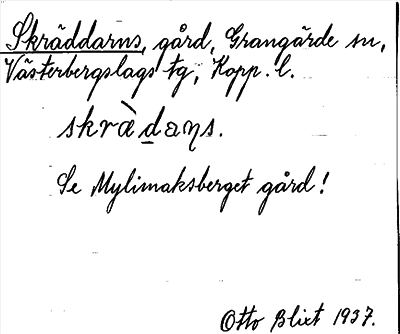 Skräddarns, gård, Grangärde sn,
Västerbergslags tg, Kopp. l.
skrädaņs.
Se Mylimaksberget gård!
Otto Blixt 1937.